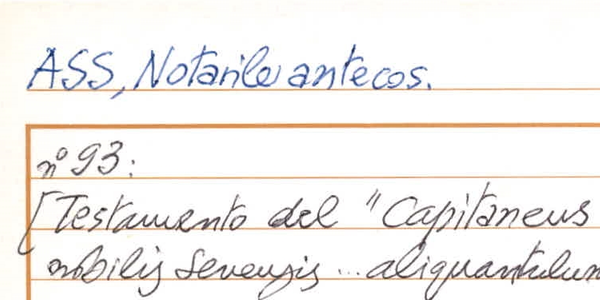 ASS, Notarile antecos.
n° 93:
[Testamento del "Capitaneus
nobilis Senensis ... aliquantulum